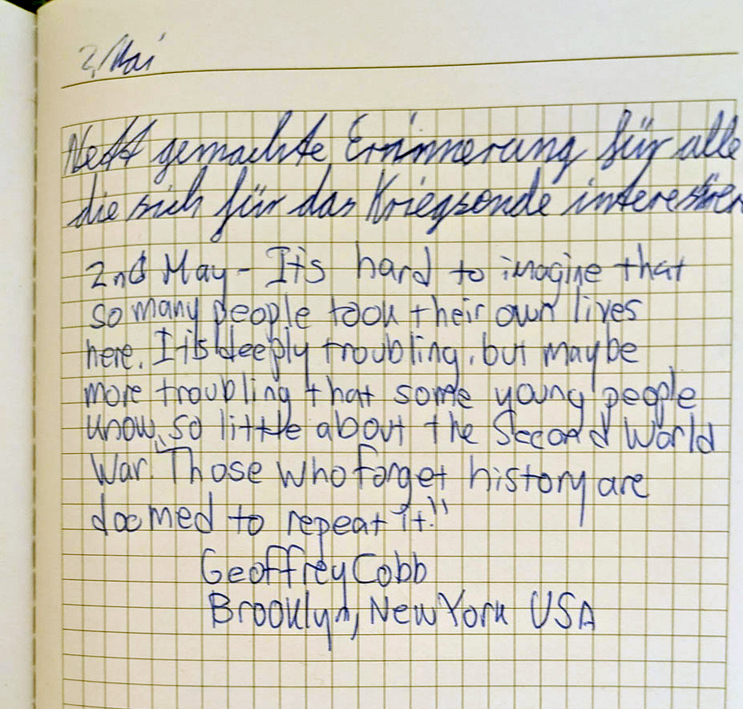 2. Mai
Nett gemachte Erinnerung für alle
die sich für das Kriegsende interessieren
2nd May - It's hard to imagine that
so many people took their own lives
here. It is deeply troubling, but maybe
more troubling that some young people
know so little about the Second World
War. "Those who forget history are
doomed to repeat it."
Geoffrey Cobb
Brooklyn, New York USA